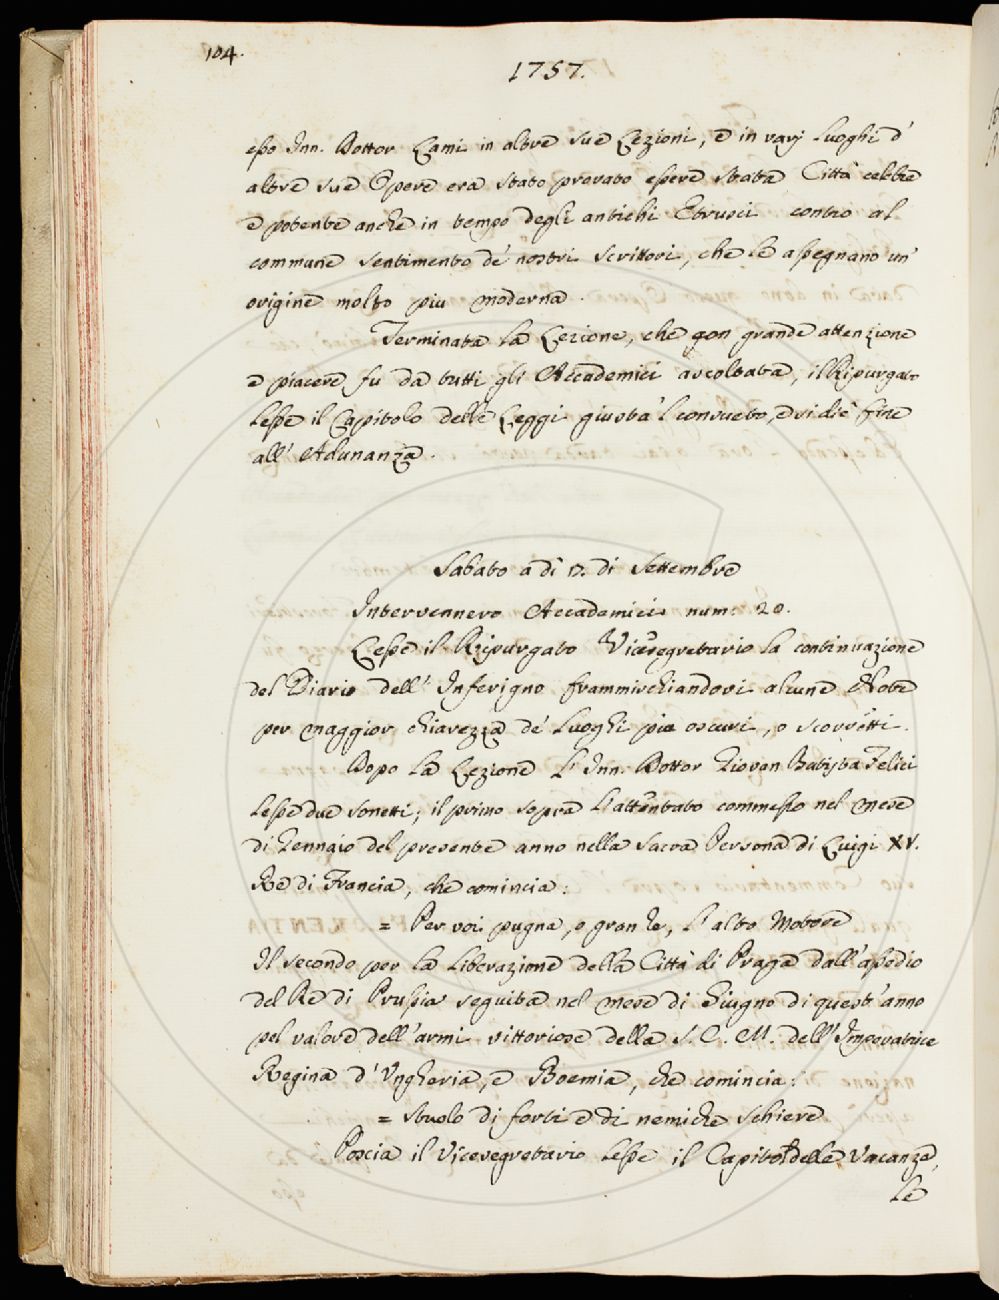 104.
1757.
esso Inn. Dottor Lami in altre sue Lezioni, e in varj Luoghi d'
altre sue Opere era stato provato essere stata Città celebre
e potente anche in tempo degli antichi Etrusci contro al
commune sentimento de' nostri scrittori, che le assegnano un'
origine molto piu moderna.
Terminata la Lezione, che con grande attenzione
e piacere fu da tutti gli Accademici ascoltata, il Ripurgato
Lesse il Capitolo delle Leggi giusta 'l consueto, e si diè fine
all' Adunanza.
Sabato a dì 17. di Settembre
Intervennero Accademici num: 20.
Lesse il Ripurgato Vicesegretario la continuazione
del Diario dell' Inferigno frammischiandovi alcune Note
per maggior chiarezza de' Luoghi più oscuri, o scorretti.
Dopo la Lezione L' Inn. Dottor Giovan Batista Felici
Lesse due sonetti; il primo sopra L'attentato commesso nel mese
di Gennaio del presente anno nella sacra Persona di Luigi XV.
Re di Francia, che comincia:
= Per voi pugna, o gran Re, L'alto Motore
Il secondo per la Liberazione della Città di Praga dall'assedio
del Re di Prussia seguita nel mese di Giugno di quest'anno
pel valore dell'armi vittoriose della S. C. M. dell'Imperatrice
Regina d'Ungheria, e Boemia, che comincia:
= Stuolo di forti e di nemiche schiere
Poscia il Vicesegretario Lesse il Capitol delle Vacanze,
le